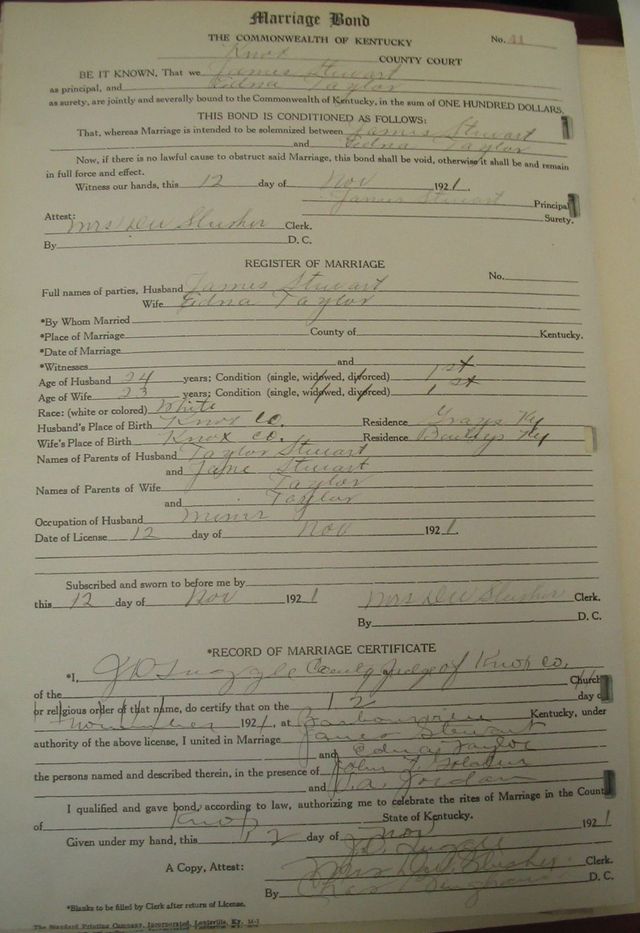 Marriage Bond
THE COMMONWEALTH OF KENTUCKY No. 41
Knox COUNTY COURT
BE IT KNOWN, That we James Stewart
as principal, and Edna Taylor
as surety, are jointly and severally bound to the Commonwealth of Kentucky, in the sum of ONE HUNDRED DOLLARS.
THIS BOND IS CONDITIONED AS FOLLOWS:
That, whereas Marriage is intended to be solemnized between James Stewart
and Edna Taylor
Now, if there is no lawful cause to obstruct said Marriage, this bond shall be void, otherwise it shall be and remain
in full force and effect.
Witness our hands, this 12 day of Nov 1921.
James Stewart Principal
Surety.
Attest:
Mrs D W Slusher Clerk.
By D. C.
REGISTER OF MARRIAGE
No.
Full names of parties, Husband James Stewart
Wife Edna Taylor
*By Whom Married
*Place of Marriage County of Kentucky.
*Date of Marriage
*Witnesses and
Age of Husband 24 years; Condition (single, widowed, divorced) 1st
Age of Wife 23 years; Condition (single, widowed, divorced) 1st
Race: (white or colored) White
Husband's Place of Birth Knox Co. Residence Grays Ky
Wife's Place of Birth Knox Co. Residence Ky
Names of Parents of Husband Taylor Stewart
and Jane Stewart
Names of Parents of Wife Taylor
and Taylor
Occupation of Husband Miner
Date of License 12 day of Nov 1921.
Subscribed and sworn to before me by
this 12 day of Nov 1921 Mrs D W Slusher Clerk.
By D. C.
*RECORD OF MARRIAGE CERTIFICATE
*I, J D Tuggle County Judge of Knox Co.
of the Church
or religious order of that name, do certify that on the 12 day of
November 1921, at Barbourville Kentucky, under
authority of the above license, I united in Marriage James Stewart
and Edna Taylor
the persons named and described therein, in the presence of John
and Jordan
I qualified and gave bond, according to law, authorizing me to celebrate the rites of Marriage in the Count
of Knox State of Kentucky.
Given under my hand, this 12 day of Nov 1921
J D Tuggle
A Copy, Attest: Mrs D W Slusher Clerk.
By D. C.
*Blanks to be filled by Clerk after return of License.
The Standard Printing Company, Incorporated, Louisville, Ky.